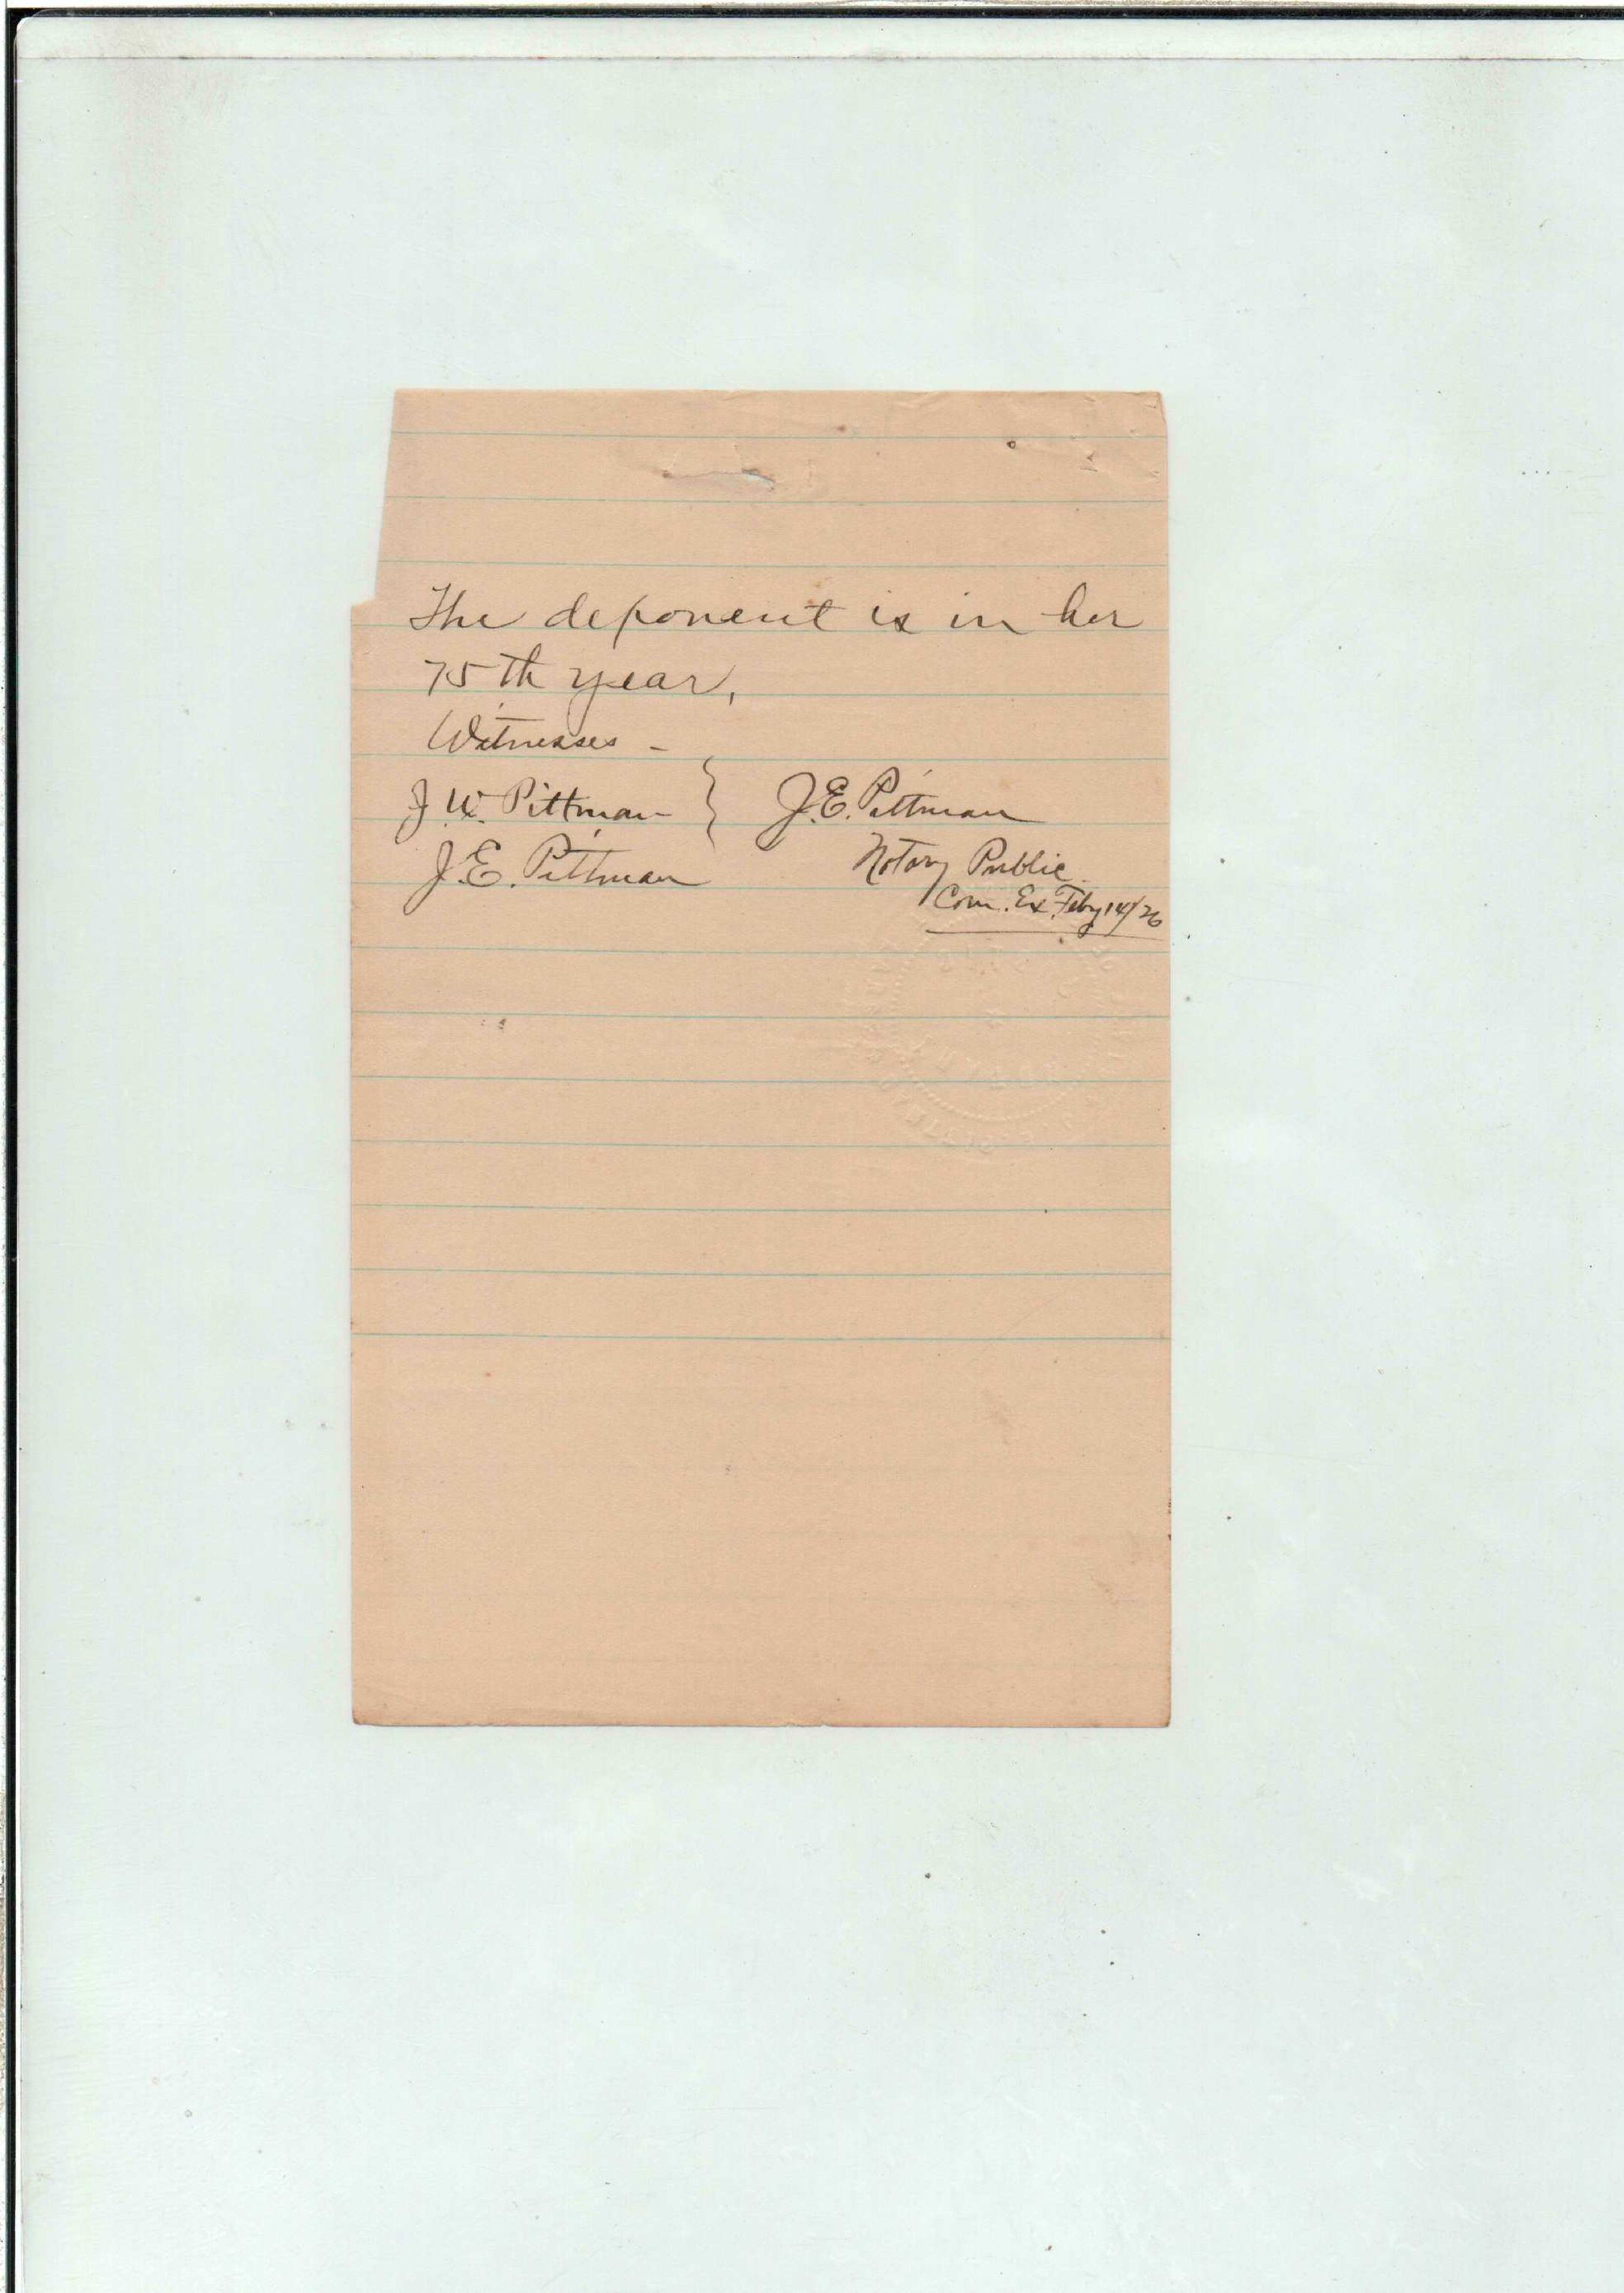 The deponent is in her
75th year,
Witnesses -
J. W. Pittman
J. E. Pittman
J. E. Pittman
Notary Public
Com. Ex. Feby 14/26